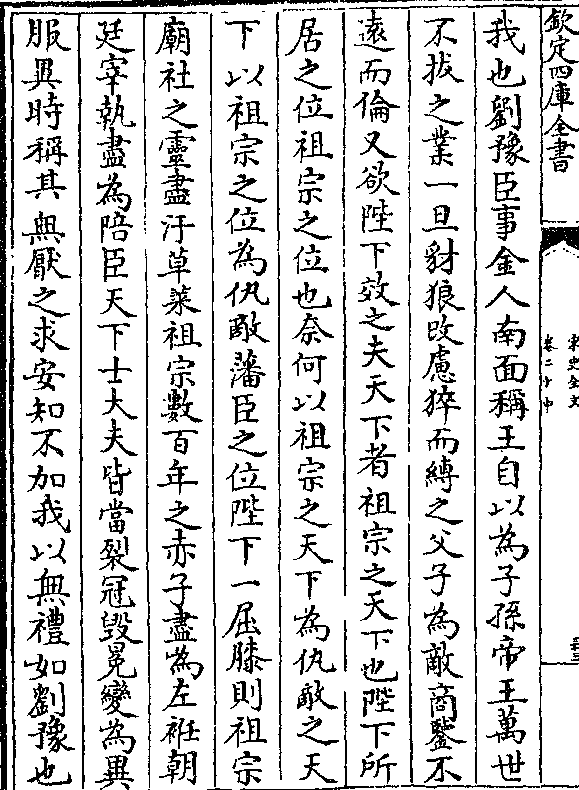 欽定四庫全書
宋史全文
卷二十中
我也劉豫臣事金人南面稱王自以為子孫帝王萬世
不拔之業一旦豺狼改慮猝而縛之父子為敵商鑒不
遠而倫又欲陛下效之夫天下者祖宗之天下也陛下所
居之位祖宗之位也奈何以祖宗之天下為仇敵之天
下以祖宗之位為仇敵藩臣之位陛下一屈膝則祖宗
廟社之靈盡汙草萊祖宗數百年之赤子盡為左衽朝
廷宰執盡為陪臣天下士大夫皆當裂冠毀冕變為異
服異時稱其無厭之求安知不加我以無禮如劉豫也